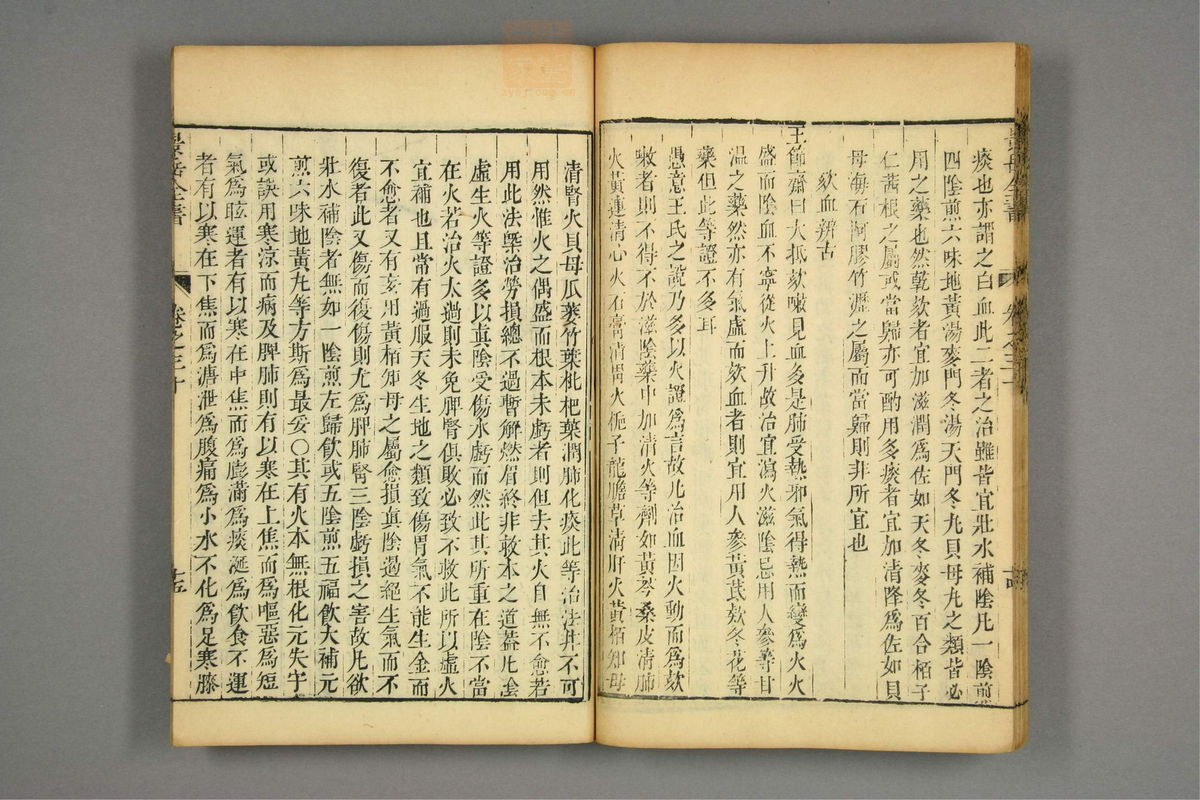 景岳全書
卷之三十
痰也亦謂之白血此二者之治難皆宜壯水補陰凡一陰煎
四陰煎六味地黃湯麥門冬湯天門冬丸貝母丸之類皆必
用之藥也然乾欬者宜加滋潤爲佐如天冬麥冬百合栢子
仁茜根之屬或當歸亦可酌用多痰者宜加清降爲佐如貝
母海石阿膠竹瀝之屬而當歸則非所宜也
欬血辨古
王節齋曰大抵欬嗽見血多是肺受熱邪氣得熱而變爲火火
盛而陰血不寧從火上升故治宜瀉火滋陰忌用人參等甘
温之藥然亦有氣虛而欬血者則宜用人參黃芪欬冬花等
藥但此等證不多耳
愚意王氏之說乃多以火證爲言故凡治血因火動而爲欬
嗽者則不得不於滋陰藥中加清火等劑如黃芩桑皮清肺
火黃連清心火石膏清胃火梔子龍膽草清肝火黃栢知母
清腎火貝母瓜蔞竹葉枇杷葉潤肺化痰此等治法并不可
用然惟火之偶盛而根本未虧者則但去其火自無不愈若
用此法槩治勞損總不過暫解燃眉終非救本之道蓋凡陰
虛生火等證多以眞陰受傷水虧而然此其所重在陰不當
在火若治火太過則未免脾腎俱敗必致不救此所以虛火
宜補也且常有過服天冬生地之類致傷胃氣不能生金而
不愈者又有妄用黃栢知母之屬愈損眞陰遏絕生氣而不
復者此又傷而復傷則尤爲脾肺腎三陰虧損之害故凡欲
壯水補陰者無如一陰煎左歸飲或五陰煎五福飲大補元
煎六味地黃丸等方斯爲最妥〇其有火本無根化元失守
或誤用寒涼而病及脾肺則有以寒在上焦而爲嘔惡爲短
氣爲眩運者有以寒在中焦而爲膨滿爲痰涎爲飲食不運
者有以寒在下焦而爲溏泄爲腹痛爲小水不化爲足寒膝
景岳全書
卷之三十